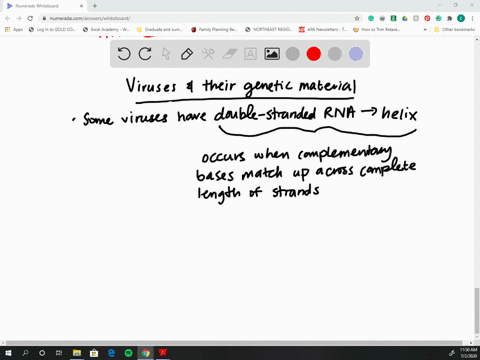 Numerade Whiteboard
numerade.com/answer/whiteboard/
Apps
Log in to GOLD CO...
Excel Academy - W...
Graduate and summ...
Family Planning Be...
NORTHEAST REGIO...
APA Newsletters - T...
How to Trim Relaxe...
Other bookmarks
Viruses & their genetic material
• Some viruses have double-stranded RNA → helix
occurs when complementary
bases match up across complete
length of strands
11:50 AM
7/2/2020